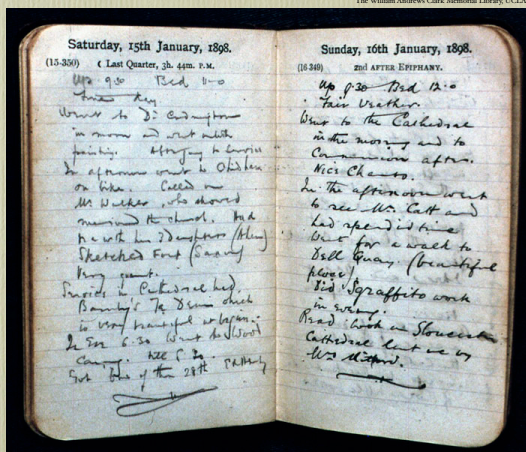 The William Andrews Clark Memorial Library, UCLA
Saturday, 15th January, 1898.
(15-350) ☾ Last Quarter, 3h. 44m. P.M.
Up 9.30 Bed 11-0
Went to Dr
in morn and went on with
painting.
In afternoon went to
on bike. Called on
Mr Walker, who showed
me round the church. Had
tea with his 3 daughters
Sketched Font (Saxon)
Very quaint.
Service in Cathedral
Te Deum which
is very beautiful
In Eve 6.30 Went to Wood
Carving. till
Got one of the 28th
Sunday, 16th January, 1898.
(16-349) 2nd AFTER EPIPHANY.
Up 9.30 Bed 12.0
Fair Weather.
Went to the Cathedral
in the morning and to
Communion after.
Nice Chants.
In the afternoon went
to see Mr. Catt and
had splendid time
Went for a walk to
Dell Quay (beautiful
place)
Did Sgraffito work
in evening.
Read book on Gloucester
Cathedral lent me by